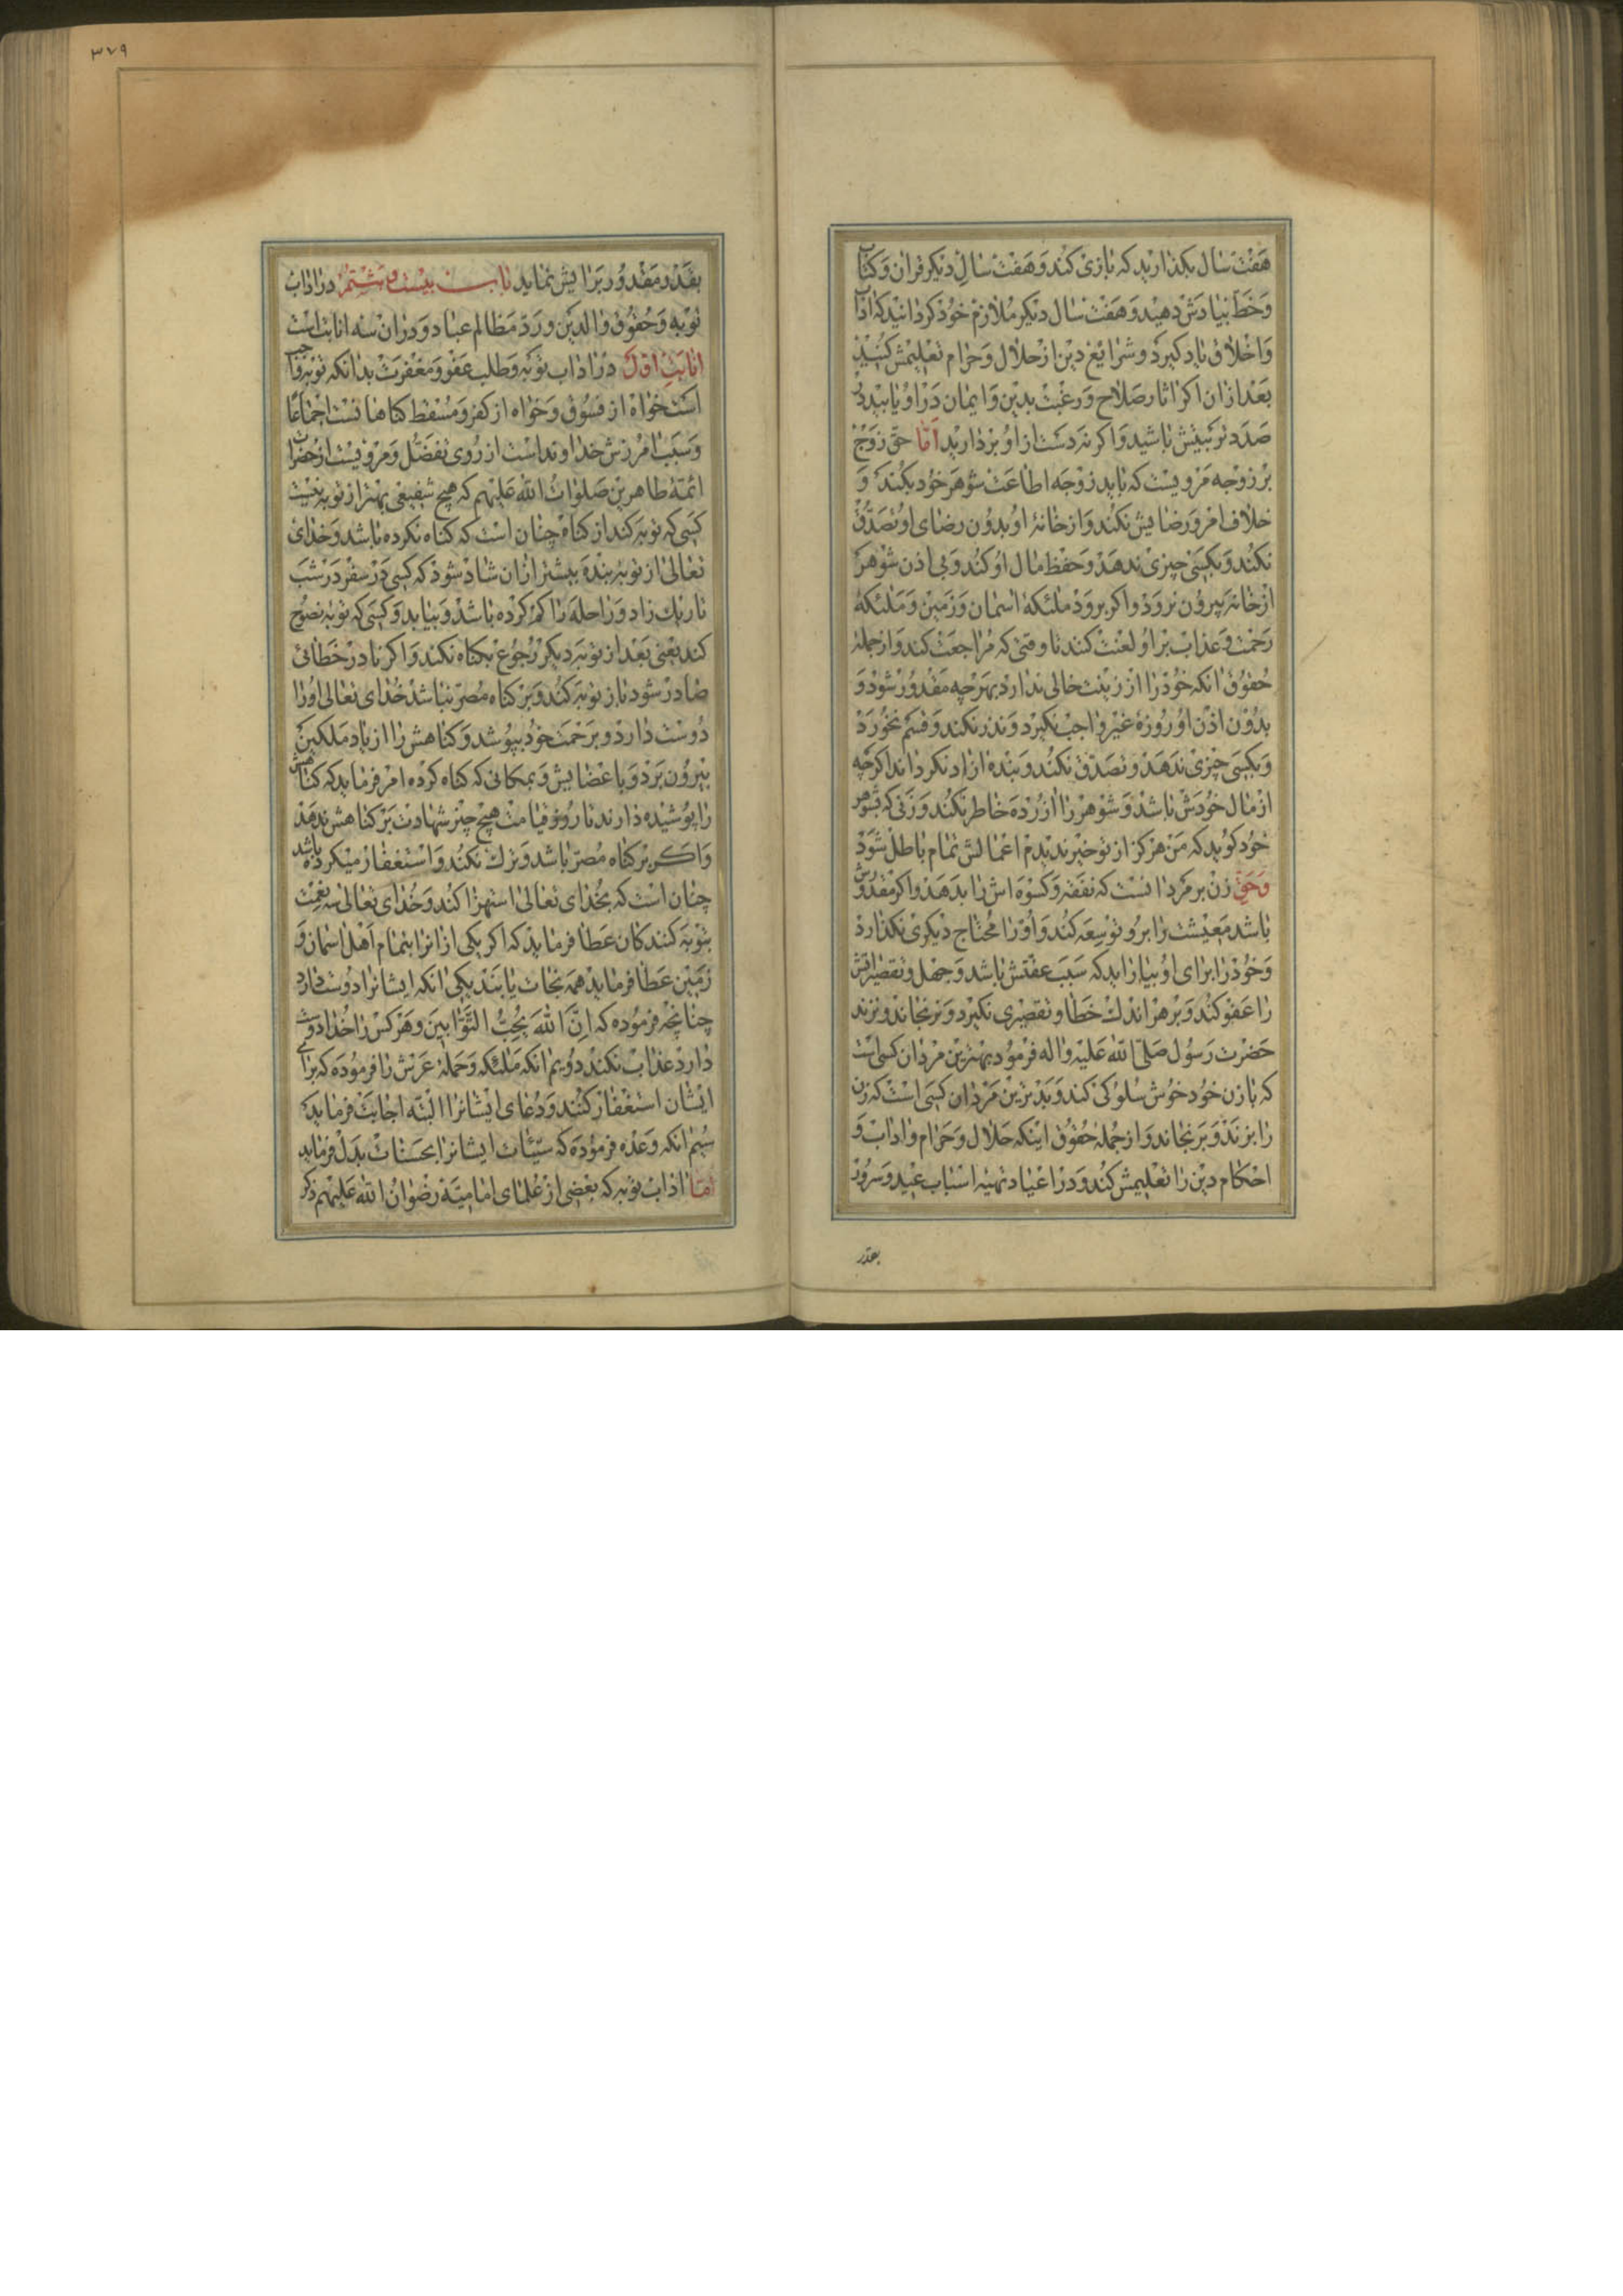 هفت سال بکذارید که بازی کند و هفت سال دیکر قران و کتاب
و خط بیادش دهید و هفت سال دیکر ملازم خود کردانید که اداب
و اخلاق یاد کیرد و شرایع دین از حلال و حرام تعلیمش کنید
بعد ازان اکر اثار صلاح و رغبت بدین و ایمان در او یابید در
صدد تربیتش باشید و اکر نه دست از او بردارید اما حق زوج
بر زوجه مرویست که باید زوجه اطاعت شوهر خود بکند و
خلاف امر و رضایش نکند و از خانهٔ او بدون رضای او تصدق
نکند و بکسی چیزی ندهد و حفظ مال او کند و بی اذن شوهر
از خانه بیرون نرود و اکر برود ملئکهٔ اسمان و زمین و ملئکهٔ
رحمت و عذاب بر او لعنت کنند تا وقتی که مراجعت کند و از جملهٔ
حقوق انکه خود را از زینت خالی ندارد بهر چه مقدور شود و
بدون اذن او روزهٔ غیر واجب نکیرد و نذر نکند و قسم نخورد
و بکسی چیزی ندهد و تصدق نکند و بنده ازاد نکرداند اکرچه
از مال خودش باشد و شوهر را ازرده خاطر نکند و زنی که بشوهر
خود کوید که من هرکز از تو خیر ندیدم اعمالش تمام باطل شود
و حق زن بر مرد انست که نفقه و کسوه اش را بدهد و اکر مقدورش
باشد معیشت را برو توسعه کند و او را محتاج دیکری نکذارد
و خود را برای او بیاراید که سبب عفتش باشد و جهل و تقصیراتش
را عفو کند و بر هر اندک خطا و تقصیری نکیرد و نرنجاند و نزند
حضرت رسول صلی الله علیه و اله فرمود بهترین مردان کسی است
که با زن خود خوش سلوکی کند و بدترین مردان کسی است که زن
را بزند و برنجاند و از جملهٔ حقوق اینکه حلال و حرام و اداب و
احکام دین را تعلیمش کند و در اعیاد تهیهٔ اسباب عید و سرور
بقدر
۳۷۹
بقدر مقدور برایش نماید باب بیست و هشتم در اداب
توبه و حقوق والدین و رد مظالم عباد و دران سه انابت است
انابت اول در اداب توبه و طلب عفو و مغفرت بدانکه توبه واجب
است خواه از فسوق و خواه از کفر و مسقط کناهانست اجماعا
و سبب امرزش خداونداست از روی تفضل و مرویست از حضرات
ائمهٔ طاهرین صلوات الله علیهم که هیچ شفیعی بهتر از توبه نیست
کسی که توبه کند از کناه چنان است که کناه نکرده باشد و خدای
تعالی از توبهٔ بنده بیشتر ازان شاد شود که کسی در سفر در شب
تاریک زاد و راحله را کم کرده باشد و بیابد و کسی که توبه نصوح
کند یعنی بعد از توبه دیکر رجوع بکناه نکند و اکر نادر خطائی
صادر شود باز توبه کند و بر کناه مصر نباشد خدای تعالی او را
دوست دارد و برحمت خود بپوشد و کناهش را از یاد ملکین
بیرون برد و باعضایش و بمکانی که کناه کرده امر فرماید که کناهش
را پوشیده دارند تا روز قیامت هیچ چیز شهادت بر کناهش ندهد
و اکر بر کناه مصر باشد و ترک نکند و استغفار میکرده باشد
چنان است که بخدای تعالی استهزا کند و خدای تعالی سه نعمت
بتوبه کنندکان عطا فرماید که اکر یکی ازانرا بتمام اهل اسمان و
زمین عطا فرماید همه نجات یابند یکی انکه ایشانرا دوست دارد
چنانچه فرموده که ان الله یحب التوابین و هر کس را خدا دوست
دارد عذاب نکند دویم انکه ملئکه و حملهٔ عرش را فرموده که برای
ایشان استغفار کنند و دعای ایشانرا البته اجابت فرماید
سیم انکه وعده فرموده که سیئات ایشانرا بحسنات بدل فرماید
اما اداب توبه که بعضی از علمای امامیه رضوان الله علیهم ذکر